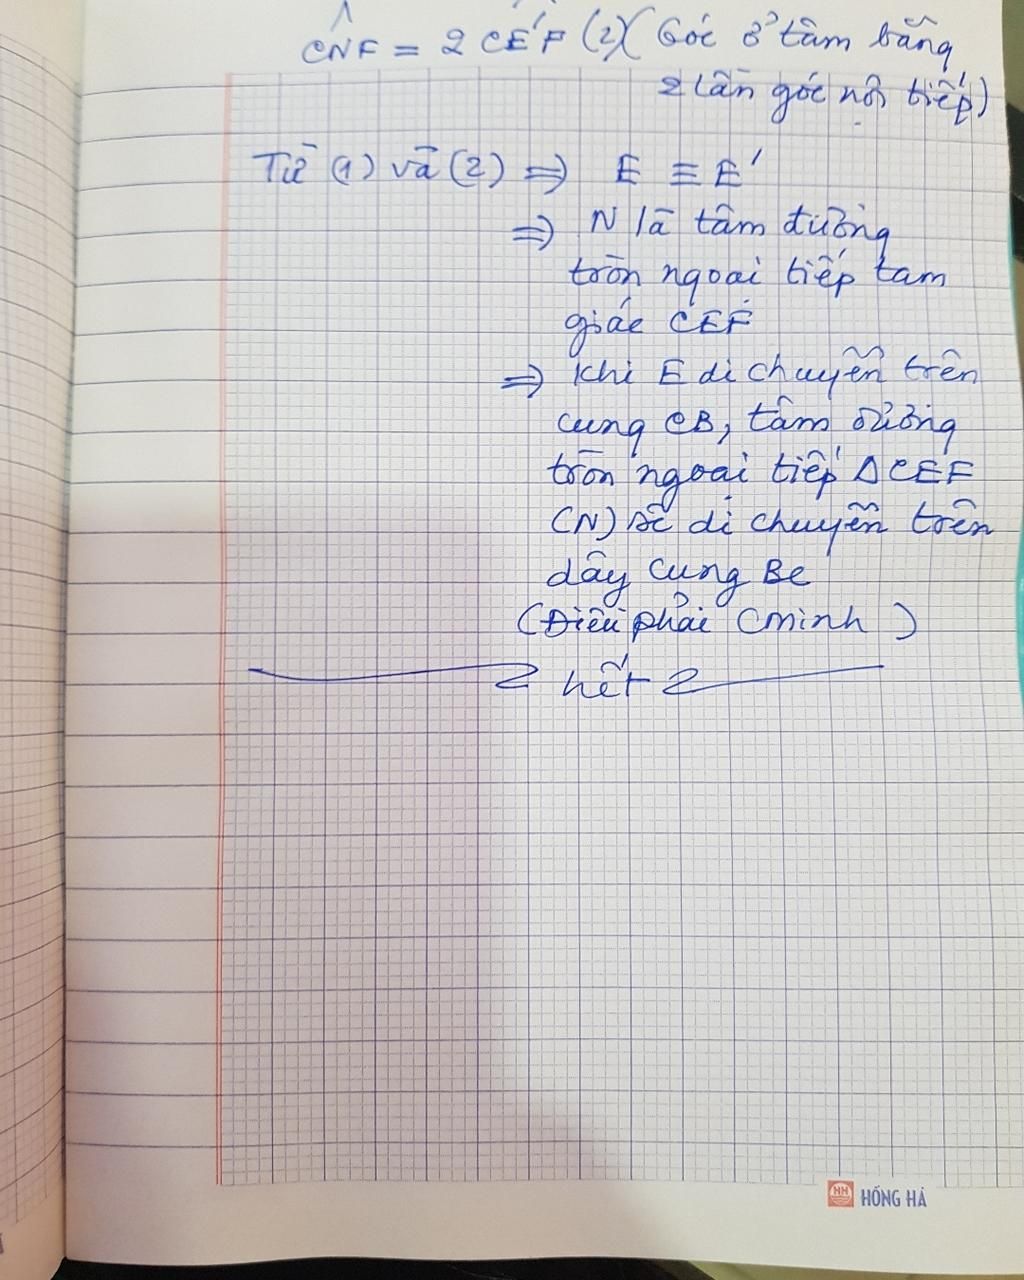 CNF = 2 CE'F (2) (Góc ở tâm bằng
2 lần góc nội tiếp)
Từ (1) và (2) => E ≡ E'
=> N là tâm đường
tròn ngoại tiếp tam
giác CEF
=> Khi E di chuyễn trên
cung CB, tâm đường
tròn ngoại tiếp ΔCEF
(N) sẽ di chuyễn trên
dây cung BC
(Điều phải Cminh)
hết
HỒNG HÀ